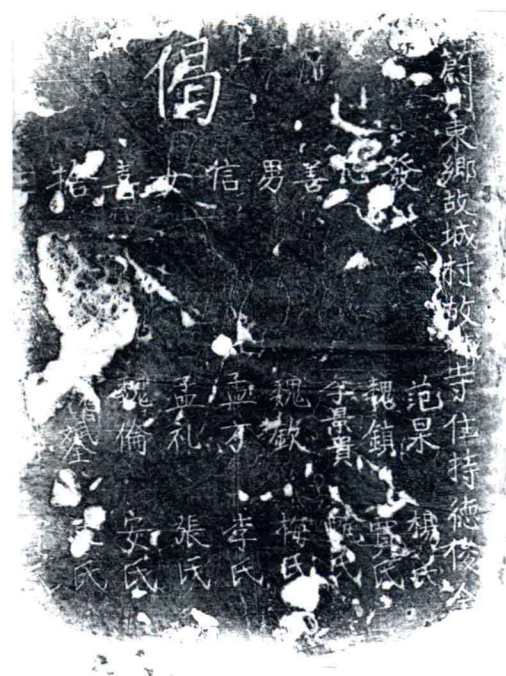 蔚州東鄉故城村故寺住持德俊
偈
發心善男信女喜捨
范杲 楊氏
魏鎮 賈氏
李景貴 氏
魏欽 梅氏
孟方 李氏
孟礼 張氏
魏倫 安氏
氏